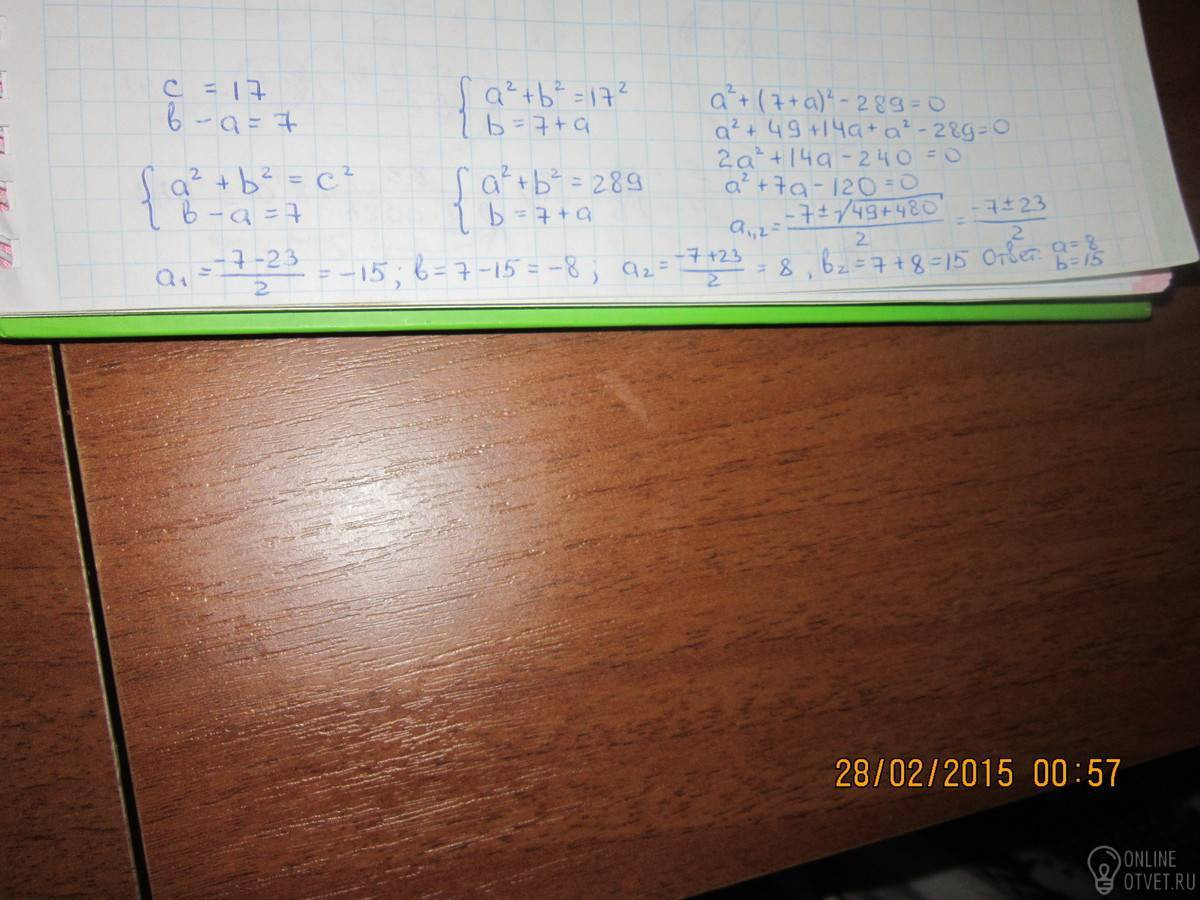 c = 17
b - a = 7
{ a² + b² = c²
b - a = 7
{ a² + b² = 17²
b = 7 + a
{ a² + b² = 289
b = 7 + a
a² + (7 + a)² - 289 = 0
a² + 49 + 14a + a² - 289 = 0
2a² + 14a - 240 = 0
a² + 7a - 120 = 0
a₁,₂ = (-7 ± √(49 + 480))/2 = (-7 ± 23)/2
a₁ = (-7 - 23)/2 = -15; b = 7 - 15 = -8; a₂ = (-7 + 23)/2 = 8, b₂ = 7 + 8 = 15 Ответ: a = 8
b = 15
28/02/2015 00:57
ONLINE
OTVET.RU